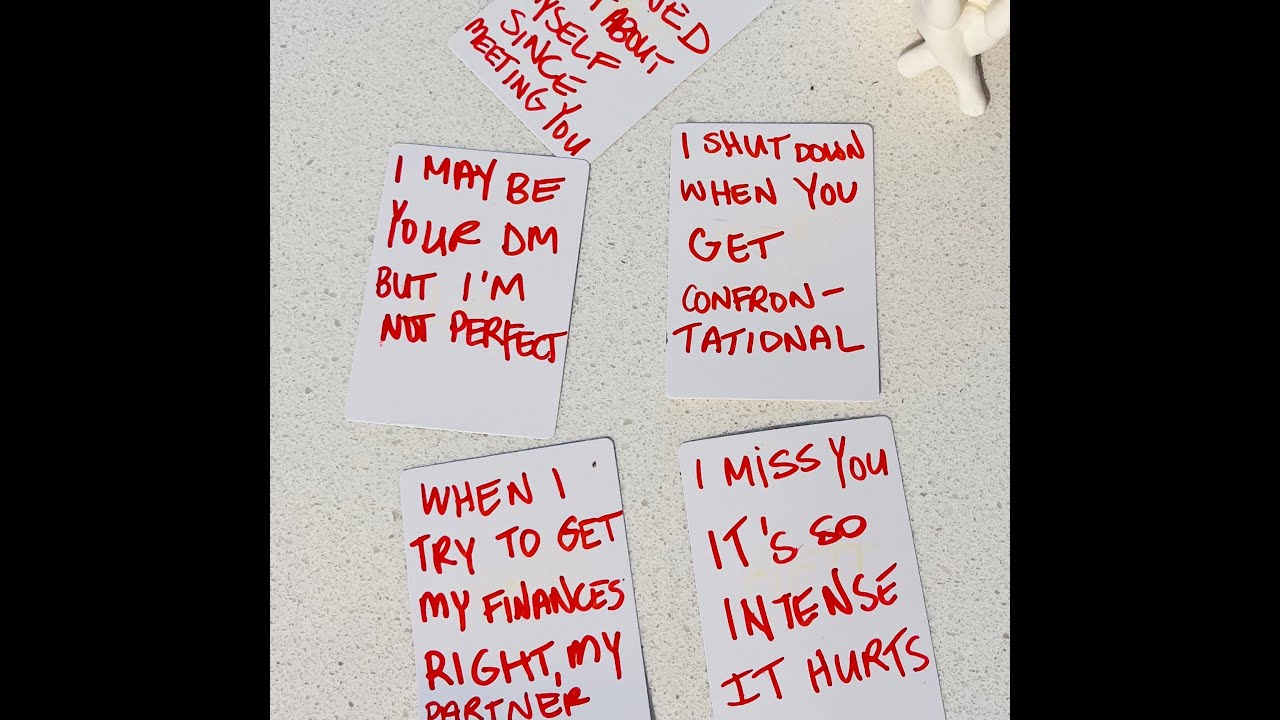 NED
ABOUT
MYSELF
SINCE
MEETING YOU
I MAY BE
YOUR DM
BUT I'M
NOT PERFECT
I SHUT DOWN
WHEN YOU
GET
CONFRON-
TATIONAL
WHEN I
TRY TO GET
MY FINANCES
RIGHT, MY
PARTNER
I MISS YOU
IT'S SO
INTENSE
IT HURTS